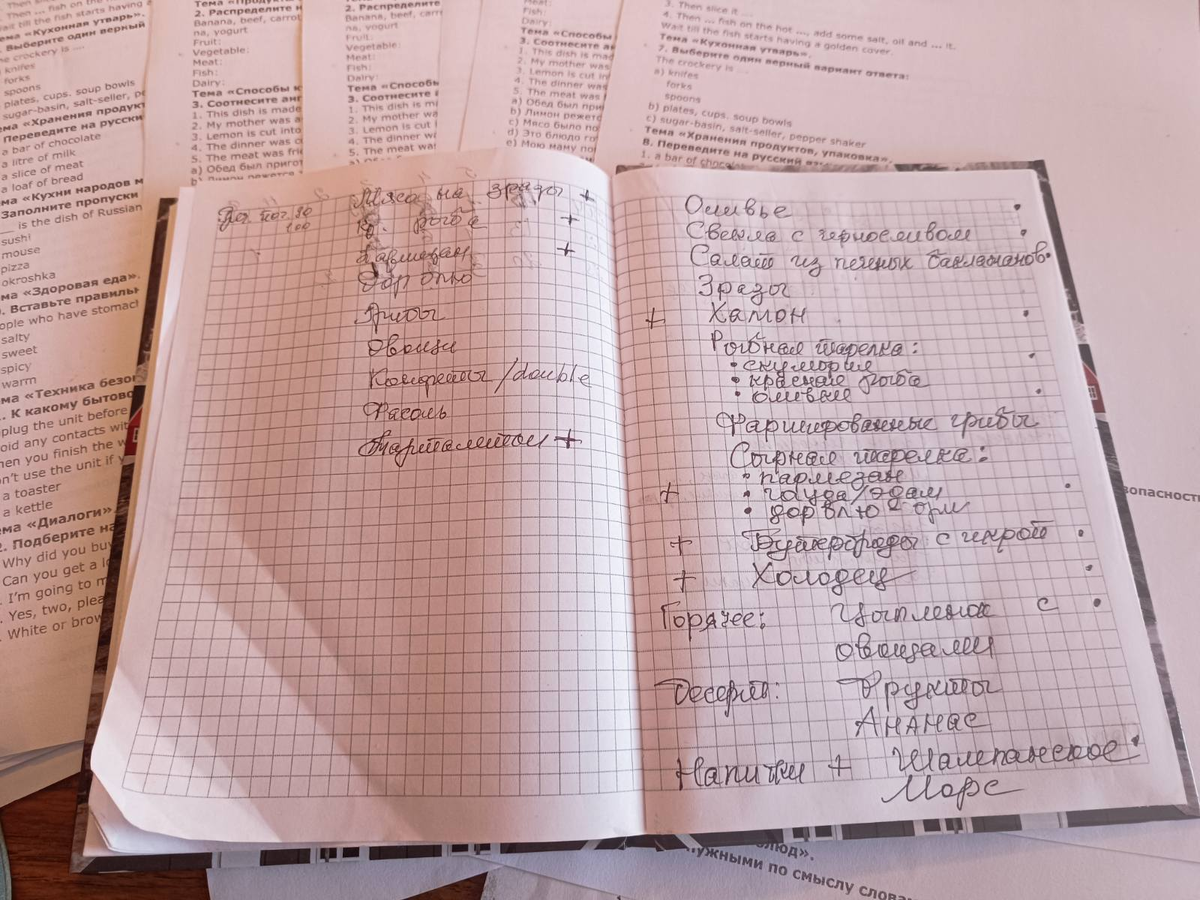 Then slice i
Тема «Продукты
2. Распределите н
Banana, beef, carrot
na, yogurt
Fruit:
Vegetable:
Meat:
Fish:
Dairy:
Тема «Способы к
3. Соотнесите анг
1. This dish is made
2. My mother was a
3. Lemon is cut into
4. The dinner was c
5. The meat was fri
a) Обед был пригот
2. Распределите
Banana, beef, carr
na, yogurt
Fruit:
Vegetable:
Meat:
Fish:
Dairy:
Тема «Способы
3. Соотнесите а
1. This dish is m
2. My mother wa
3. Lemon is cut i
4. The dinner wi
5. The meat wa
Meat:
Fish:
Dairy:
Тема «Способы
3. Соотнесите ан
1. This dish is mad
2. My mother was
3. Lemon is cut in
4. The dinner was
5. The meat was f
a) Обед был при
b) Лимон режетс
c) Мясо было по
d) Это блюдо го
e) Мою маму по
3. Then slice it ...
4. Then ... fish on the hot ..., add some salt, oil and ... it.
Wait till the fish starts having a golden cover.
Тема «Кухонная утварь».
7. Выберите один верный вариант ответа:
The crockery is ...
a) knifes
forks
spoons
b) plates, cups. soup bowls
c) sugar-basin, salt-seller, pepper shaker
Тема «Хранения продуктов, упаковка».
8. Переведите на русский
1. a bar of chocol
... fish on the
ait till the fish starts having a
ема «Кухонная утварь».
Выберите один верный
he crockery is ...
knifes
forks
spoons
plates, cups. soup bowls
sugar-basin, salt-seller, pe
ма «Хранения продукт
Переведите на русски
a bar of chocolate
a litre of milk
a slice of meat
a loaf of bread
ма «Кухни народов м
Заполните пропуски
__ is the dish of Russian
sushi
mouse
pizza
okroshka
ма «Здоровая еда».
. Вставьте правиль
ople who have stomac
salty
sweet
spicy
warm
ма «Техника безоп
. К какому бытово
plug the unit before
oid any contacts wit
hen you finish the w
n't use the unit if y
a toaster
a kettle
ма «Диалоги».
2. Подберите на
Why did you buy
Can you get a lo
I'm going to m
Yes, two, plea
White or brow
Мясо на зразы +
Кр. рыба +
Пармезан +
Дор блю
Грибы
Овощи
Конфеты /double
Фасоль
Тарталетки +
Оливье
Свекла с черносливом
Салат из печёных баклажанов
Зразы
+ Хамон
Рыбная тарелка:
• скумбрия
• красная рыба
• оливки
Фаршированные грибы
Сырная тарелка:
• пармезан
+ • гауда/эдам
• дорблю
+ Бутерброды с икрой
+ Холодец
Горячее: Цыпленок с
овощами
Десерт: Фрукты
Ананас
Напитки + Шампанское
Морс
зопасност
блюд».
ужными по смыслу слова